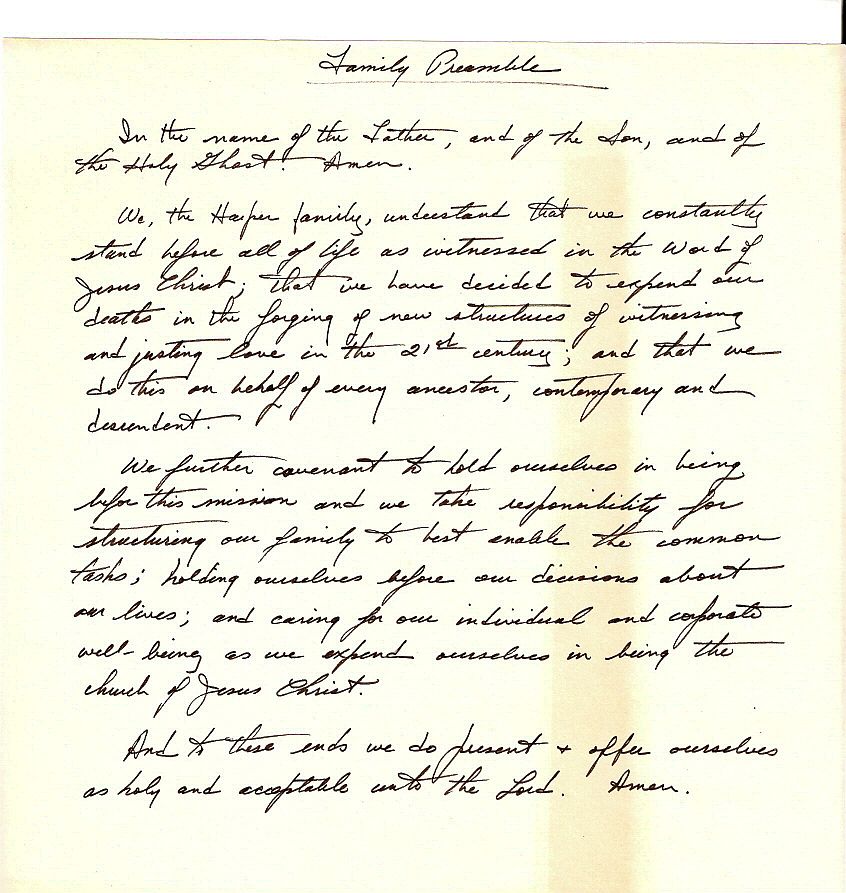 Family Preamble
In the name of the Father, and of the Son, and of
the Holy Ghost. Amen.
We, the Harper family, understand that we constantly
stand before all of life as witnessed in the Word of
Jesus Christ; that we have decided to expend our
deaths in the forging of new structures of witnessing
and justing love in the 21st century; and that we
do this on behalf of every ancestor, contemporary and
descendent.
We further covenant to hold ourselves in being
before this mission and we take responsibility for
structuring our family to best enable the common
tasks; holding ourselves before our decisions about
our lives; and caring for our individual and corporate
well-being as we expend ourselves in being the
church of Jesus Christ.
And to these ends we do present + offer ourselves
as holy and acceptable unto the Lord. Amen.